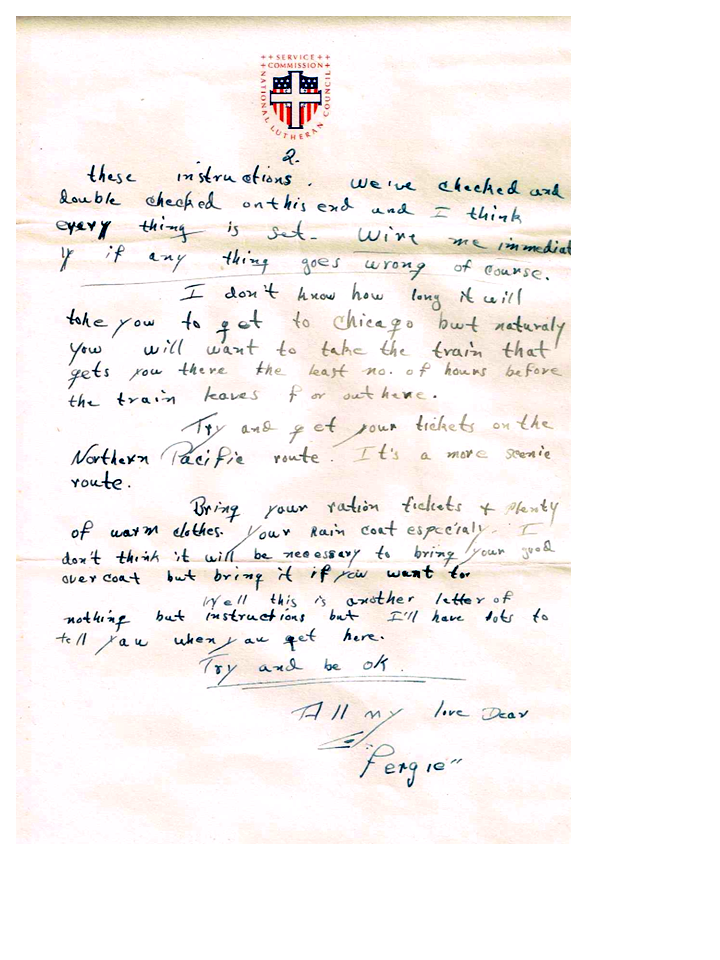 ++ SERVICE ++
+ COMMISSION +
NATIONAL LUTHERAN COUNCIL
2.
these instructions. We've checked and
double checked on this end and I think
every thing is set. Wire me immediat
ly if any thing goes wrong of course.
I don't know how long it will
take you to get to Chicago but naturaly
you will want to take the train that
gets you there the least no. of hours before
the train leaves for out here.
Try and get your tickets on the
Northern Pacific route. It's a more scenic
route.
Bring your ration tickets + plenty
of warm clothes. Your Rain coat especialy. I
don't think it will be necessary to bring your good
over coat but bring it if you want to.
Well this is another letter of
nothing but instructions but I'll have lots to
tell you when you get here.
Try and be OK.
All my love Dear
"Fergie"